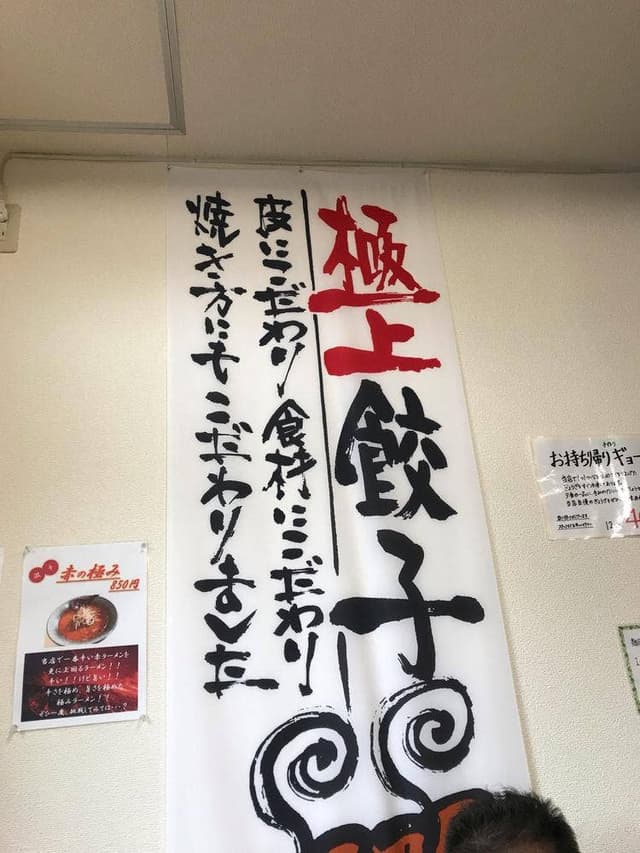 極上餃子
皮にこだわり食材にこだわり
焼き方にもこだわりました
赤の極み
850円
当店で一番辛い赤ラーメンを
更に上回るラーメン！！
辛い！！けど旨い！！
辛さを極め、旨さを極めた
極みラーメン！！
ぜひ一度、挑戦してみては・・・？
手作り
お持ち帰りギョー